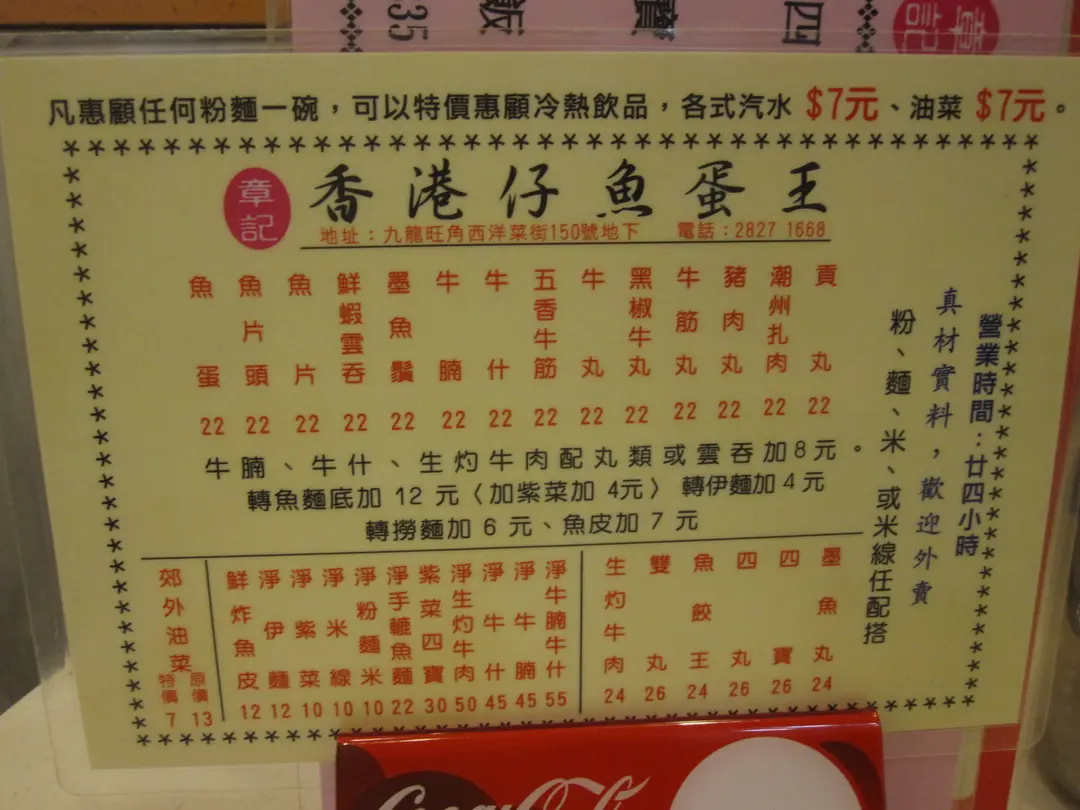 35
飯
寶
四
章記
凡惠顧任何粉麵一碗，可以特價惠顧冷熱飲品，各式汽水 $7元、油菜 $7元。
章記
香港仔魚蛋王
地址：九龍旺角西洋菜街150號地下 電話：2827 1668
魚蛋 22
魚片頭 22
魚片 22
鮮蝦雲吞 22
墨魚鬚 22
牛腩 22
牛什 22
五香牛筋 22
牛丸 22
黑椒牛丸 22
牛筋丸 22
豬肉丸 22
潮州扎肉 22
貢丸 22
營業時間：廿四小時
真材實料，歡迎外賣
粉、麵、米、或米線任配搭
牛腩、牛什、生灼牛肉配丸類或雲吞加8元。
轉魚麵底加 12 元〈加紫菜加 4元〉 轉伊麵加4元
轉撈麵加 6 元、魚皮加 7 元
郊外油菜
特價 7
原價 13
鮮炸魚皮 12
淨伊麵 12
淨紫菜 10
淨米線 10
淨粉麵米 10
淨手轆魚麵 22
紫菜四寶 30
淨生灼牛肉 50
淨牛什 45
淨牛腩 45
淨牛腩牛什 55
生灼牛肉 24
雙丸 26
魚餃王 24
四丸 26
四寶 26
墨魚丸 24
Coca-Cola